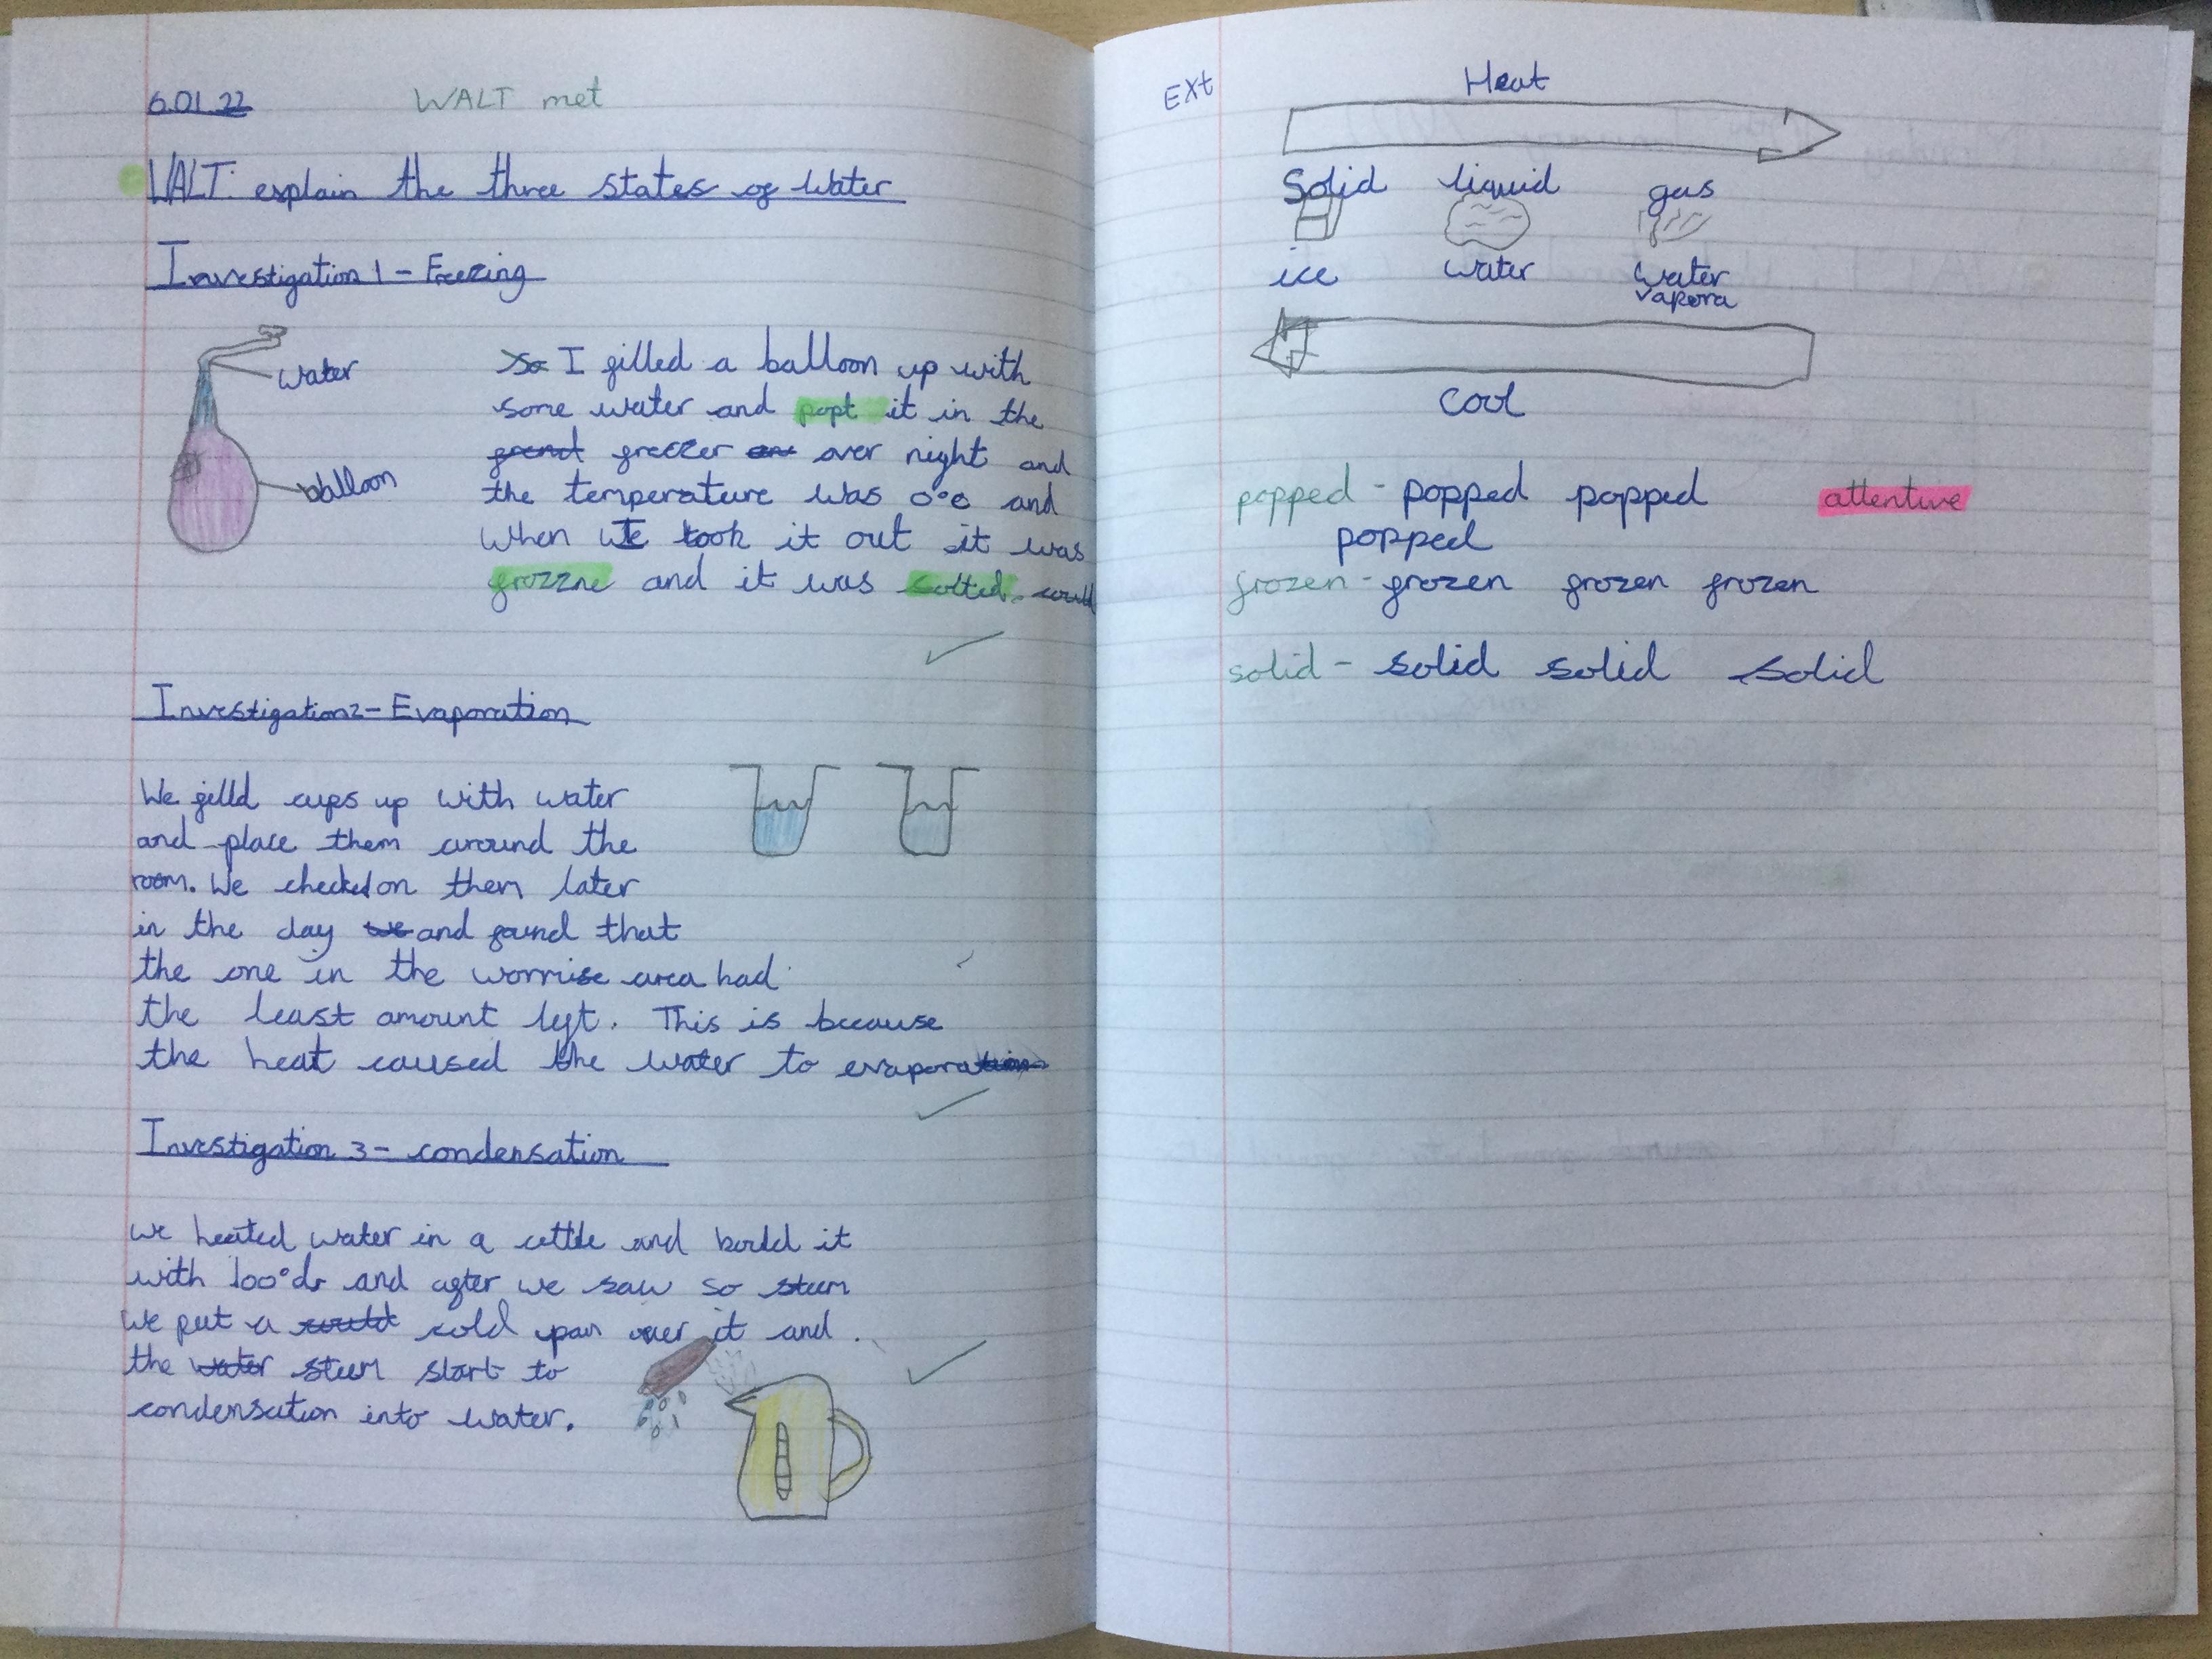 6.01.22 WALT met
WALT: explain the three states of water
Investigation 1 - Freezing
water
balloon
So I filled a balloon up with
some water and popt it in the
freezer over night and
the temperature was 0°c and
when we took it out it was
frozzne and it was solted.
Investigation 2 - Evaporation
We filld cups up with water
and place them around the
room. We checked on them later
in the day we and found that
the one in the wormise area had
the least amount left. This is because
the heat caused the water to evaporation
Investigation 3 - condensation
we heated water in a cettle and boild it
with 100° and after we saw so steem
we put a cold pan over it and
the water steem start to
condensation into water.
EXt
Heat
Solid liquid gas
ice water water
vapora
Cool
popped - popped popped attentive
popped
frozen - frozen frozen frozen
solid - solid solid solid